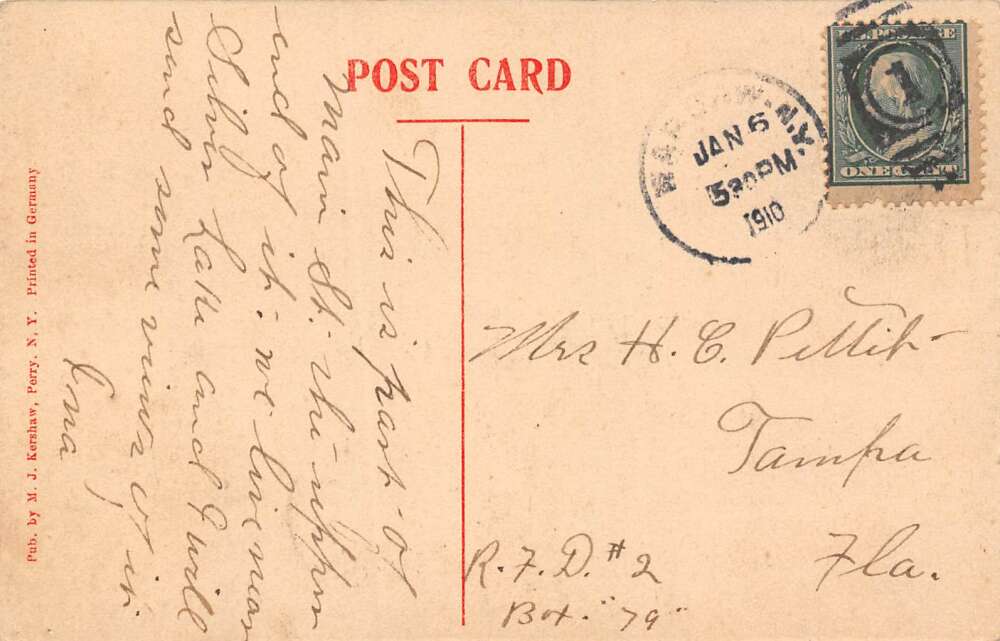 POST CARD
This is part of
Main St. the upper
end of it. we live near
Silver Lake and I will
send some views of it.
Ina
WARSAW, N.Y.
JAN 6
530PM
1910
U.S. POSTAGE
1
ONE CENT
Mrs H. C. Pettit
Tampa
Fla.
R.F.D. #2
Box. "79"
Pub. by M. J. Kershaw, Perry. N. Y. Printed in Germany